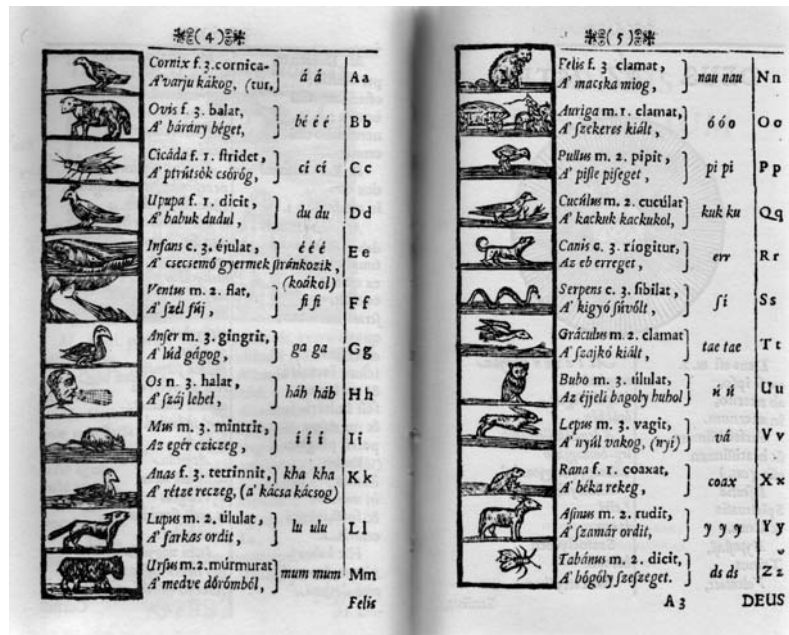 ( 4 )
Cornix f. 3. cornica-
A' varju kákog, (tur,
á á
A a
Ovis f. 3. balat,
A' bárány béget,
bé é é
B b
Cicáda f. 1. ſtridet,
A' ptrütsök csörög,
cí cí
C c
Upupa f. 1. dicit,
A' babuk dudul,
du du
D d
Infans c. 3. éjulat,
A' csecsemő gyermek ſiránkozik,
é é é
(koákol)
E e
Ventus m. 2. flat,
A' ſzél fúj,
fi fi
F f
Anſer m. 3. gingrit,
A' lúd gágog,
ga ga
G g
Os n. 3. halat,
A' ſzáj lehel,
háh háb
H h
Mus m. 3. mintrit,
Az egér cziczeg,
í í í
I i
Anas f. 3. tetrinnit,
A' rétze reczeg, (a' kácsa kácsog)
kha kha
K k
Lupus m. 2. úlulat,
A' farkas ordit,
lu ulu
L l
Urſus m. 2. múrmurat
A' medve dörömböl,
mum mum
M m
Felis
( 5 )
Felis f. 3. clamat,
A' macska miog,
nau nau
N n
Auriga m. 1. clamat,
A' ſzekeres kiált,
ó ó o
O o
Pullus m. 2. pipit,
A' piſle piſeget,
pi pi
P p
Cucúlus m. 2. cucúlat
A' kackuk kackukol,
kuk ku
Q q
Canis c. 3. ríogitur,
Az eb erreget,
err
R r
Serpens c. 3. ſibilat,
A' kigyó ſúvölt,
ſi
S s
Gráculus m. 2. clamat
A' ſzajkó kiált,
tae tae
T t
Bubo m. 3. úlulat,
Az éjjeli bagoly huhol
ú ú
U u
Lepus m. 3. vagit,
A' nyúl vakog, (nyi)
vá
V v
Rana f. 1. coaxat,
A' béka rekeg,
coax
X x
Aſinus m. 2. rudit,
A' ſzamár ordit,
y y y
Y y
Tabánus m. 2. dicit,
A' bögöly ſzeſzeget.
ds ds
Z z
A 3
DEUS